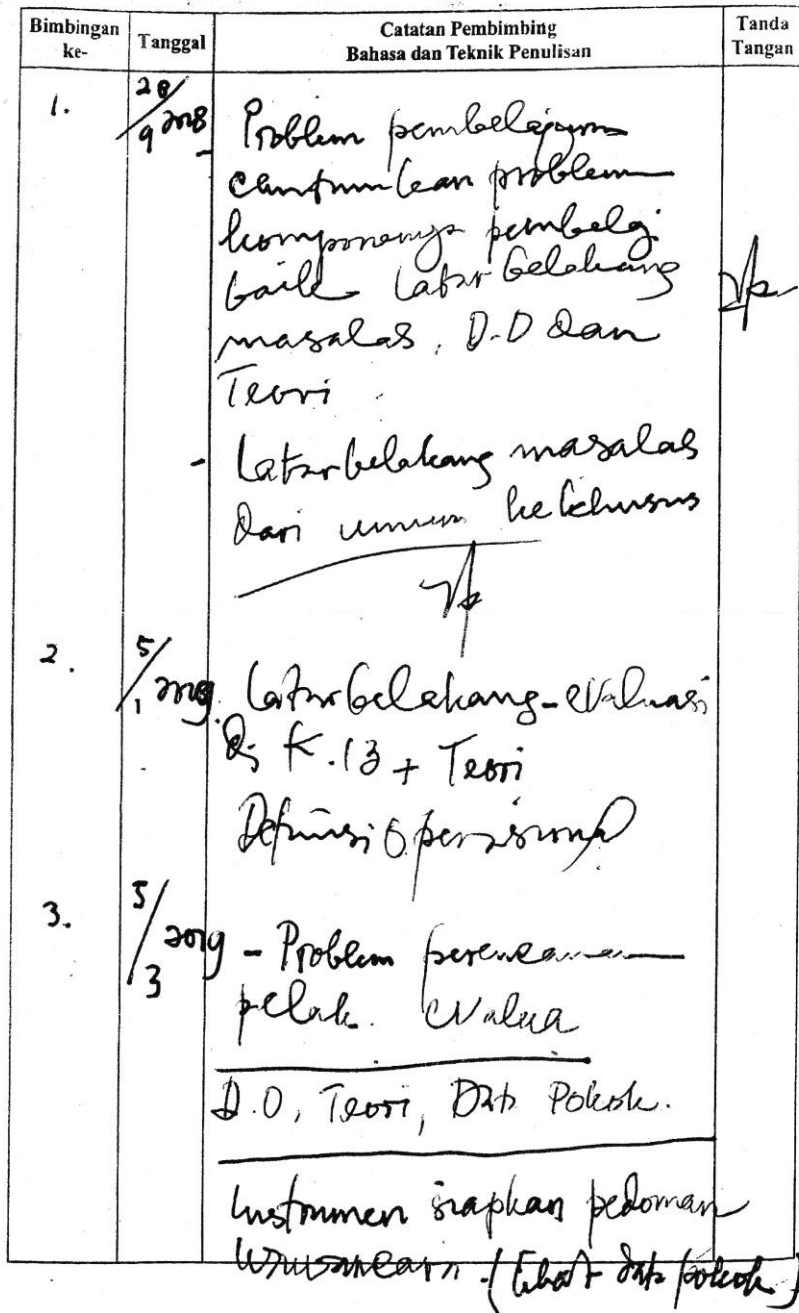 Bimbingan ke- Tanggal Catatan Pembimbing Bahasa dan Teknik Penulisan Tanda Tangan
1. 28/9 2018 - Problem pembelajaran
cantumkan problem
komponennya pembelaj
baik Latar belakang
masalah, D.O dan
Teori
- Latar belakang masalah
dari umum ke khusus
2. 5/1 2019. Latar belakang - evaluasi
di K.13 + Teori
Definisi Operasional
3. 5/3 2019 - Problem perencanaan
pelak. evalua
D.O, Teori, Data Pokok.
Instrumen siapkan pedoman
wawancara. (lihat data pokok)